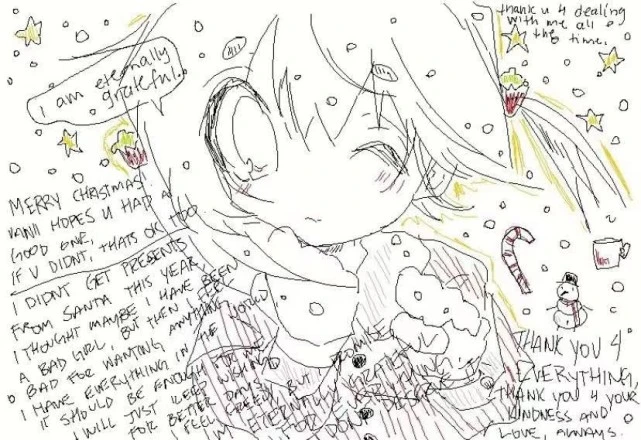 thank u 4 dealing
with me all
the time.
i am eternally
grateful.
MERRY CHRISTMAS.
VANI HOPES U HAD A
GOOD ONE,
IF U DIDNT, THATS OK TOO
I DIDNT GET PRESENTS
FROM SANTA THIS YEAR
I THOUGHT MAYBE I HAVE BEEN
A BAD GIRL, BUT THEN I FEEL
BAD FOR WANTING ANYTHING
I HAVE EVERYTHING IN THE WORLD
IT SHOULD BE ENOUGH FOR ME
I WILL JUST KEEP WISHING
FOR BETTER DAYS
FEEL GREEDY, BUT I PROMISE
IM ETERNALLY GRATEFUL
FOR EVERYTHING
I DONT DESERVE IT
THANK YOU 4
EVERYTHING,
THANK YOU 4 YOUR
KINDNESS AND
LOVE, ALWAYS.